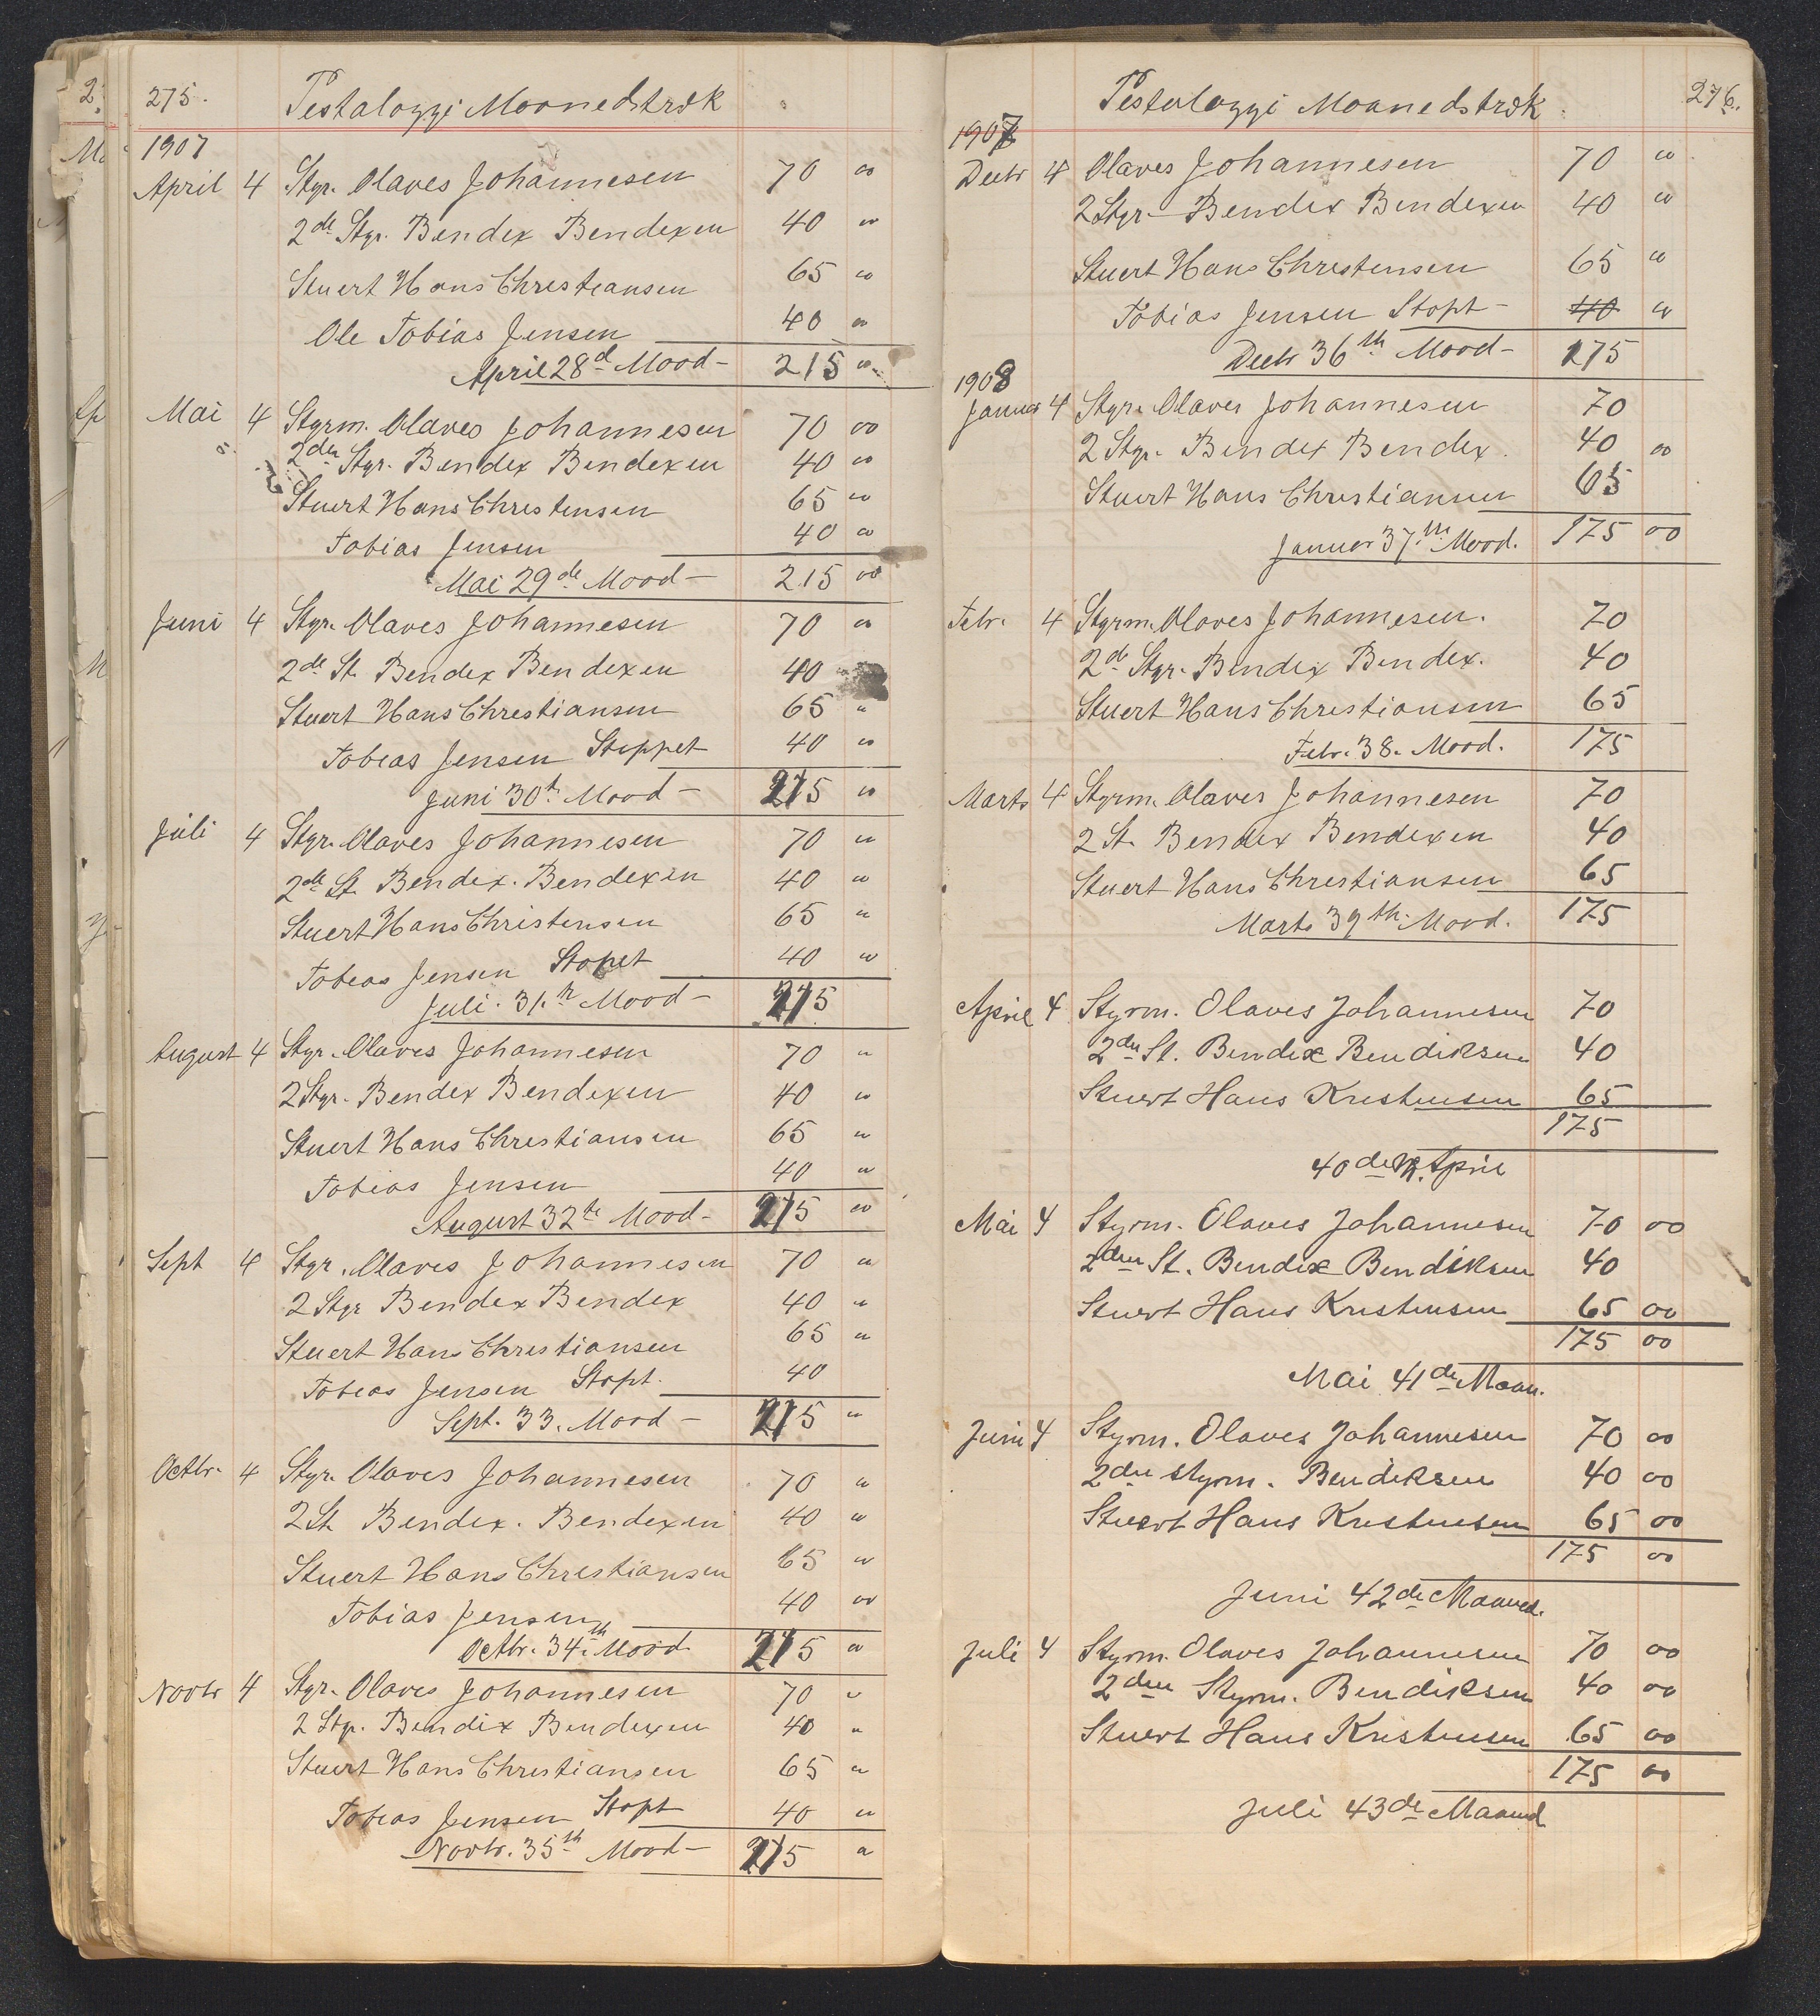 275. Pestalozzi Moanedstræk
1907
April 4 Styr. Olaves Johannesen 70 00
2de Styr. Bendex Bendexen 40 00
Stuert Hans Chrestiansen 65 00
Ole Tobias Jensen 40 00
April 28d Mood- 215 00
Mai 4 Styrm. Olaves Johannesen 70 00
2den Styr. Bendex Bendexen 40 00
Stuert Hans Chrestensen 65 00
Tobias Jensen 40 00
Mai 29de Mood- 215 00
Juni 4 Styr. Olaves Johannesen 70 00
2de St. Bendex Bendexen 40
Stuert Hans Chrestiansen 65 "
Tobias Jensen Stoppet 40 00
Juni 30th Mood- 175 00
Juli 4 Styr. Olaves Johannesen 70 "
2de St. Bendex. Bendexen 40 00
Stuert Hans Christensen 65 "
Tobias Jensen Stopet 40 00
Juli. 31. Mood- 175
August 4 Styr. Olaves Johannesen 70 "
2 Styr. Bendex Bendexen 40 00
Stuert Hans Chrestiansen 65 "
Tobias Jensen 40 "
August 32te Mood- 175 00
Sept 4 Styr. Olaves Johannesen 70 "
2 Styr Bendex Bendex 40 "
Stuert Hans Chrestiansen 65 "
Tobias Jensen Stopt. 40
Sept. 33. Mood- 175 "
Octbr. 4 Styr. Olaves Johannesen 70 "
2 St. Bendex. Bendexen 40 00
Stuert Hans Chrestiansen 65 00
Tobias Jensen 40 00
Octbr. 34th Mood 175 "
Novbr 4 Styr. Olaves Johannesen 70 "
2 Styr. Bendix Bendexen 40 "
Stuert Hans Chrestiansen 65 "
Tobias Jensen Stopt 40 "
Novbr. 35th Mood- 175 "
Pestalozzi Moanedstræk. 276.
1907
Decbr 4 Olaves Johannesen 70 00
2 Styr- Bendex Bendexen 40 00
Stuert Hans Chrestensen 65 00
Tobias Jensen Stopt- 40 00
Decbr 36th Mood- 175
1908
Januar 4 Styr. Olaves Johannesen 70
2 Styr. Bendex Bendex. 40 00
Stuert Hans Chrestiansen 65
Januar 37.th Mood. 175 00
Febr. 4 Styrm. Olaves Johannesen. 70
2de Styr. Bendix Bendex. 40
Stuert Hans Chrestiansen 65
Febr. 38. Mood. 175
Marts 4 Styrm. Olaves Johannesen 70
2 St. Bendex Bendexen 40
Stuert Hans Chrestiansen 65
Marts 39th. Mood. 175
April 4 Styrm. Olaves Johannesen 70
2den St. Bendix Bendiksen 40
Stuert Hans Kristensen 65
175
40de M. April
Mai 4 Styrm. Olaves Johannesen 70 00
2den St. Bendix Bendiksen 40
Stuert Hans Kristensen 65 00
175 00
Mai 41de Maan.
Juni 4 Styrm. Olaves Johannesen 70 00
2den styrm. Bendiksen 40 00
Stuert Hans Kristensen 65 00
175 00
Juni 42de Maaned.
Juli 4 Styrm. Olaves Johannesen 70 00
2den Styrm. Bendiksen 40 00
Stuert Hans Kristensen 65 00
175 00
Juli 43de Maaned